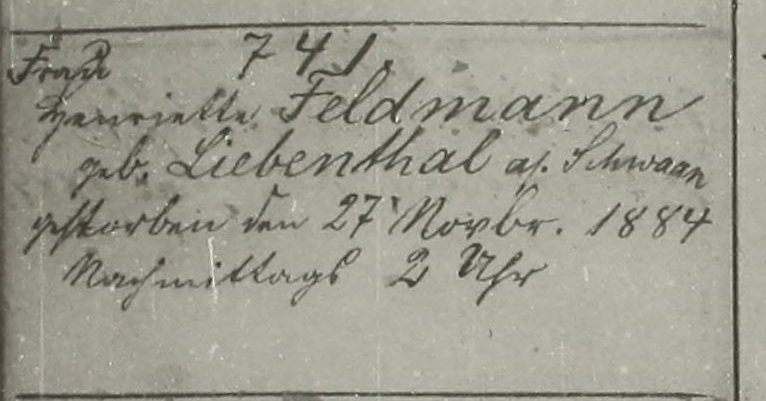 Frau 741.
Henriette Feldmann
geb. Liebenthal a/. Schwaan
gestorben den 27' Novbr. 1884
Nachmittags 2 Uhr